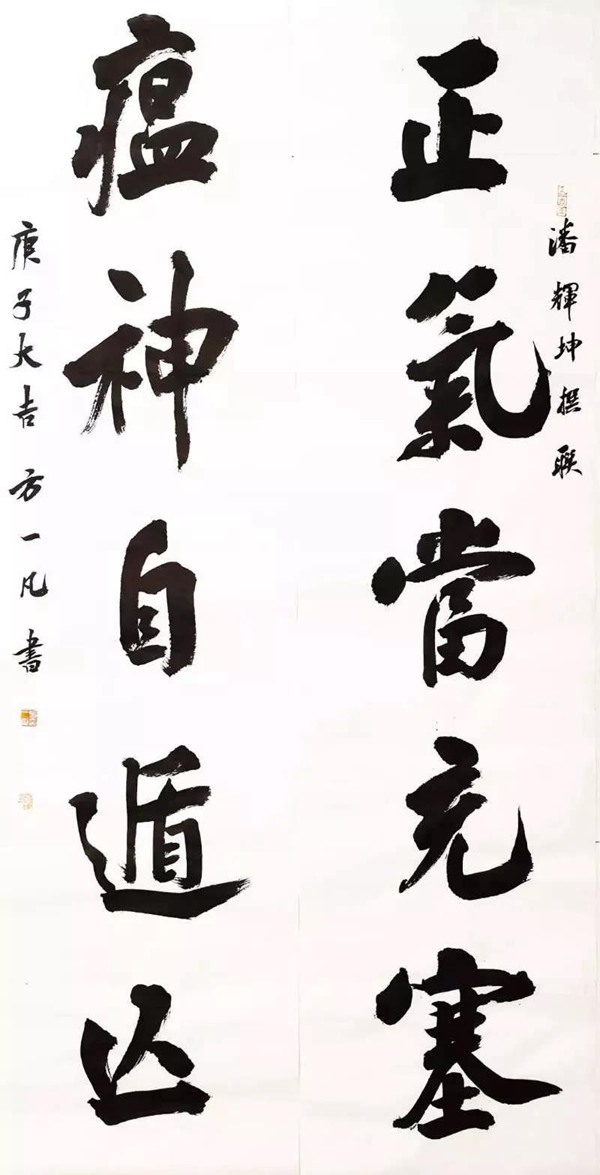 潘輝坤撰联
正氣當充塞
瘟神自遁亾
庚子大吉 方一凡書